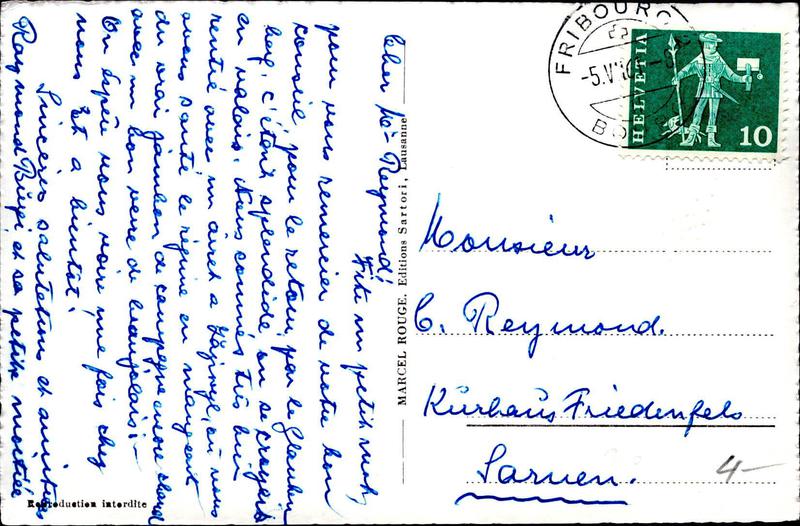 Cher Mr Reymond!
Vite un petit mot,
pour vous remercier de votre bon
conseil, pour le retour, par le Glauben
berg, c'était splendide, on se croyait
en valais. Nous sommes très bien
rentré avec un arrêt a, où nous
avons sauté le régime en mangeant
du vrai jambon de campagne encore chaud
avec un bon verre de beaujolais. -
On espère vous voire une fois chez
nous. Et a bientôt.
Sincères salutations et amitiés
Raymond et sa petite moitié
MARCEL ROUGE. Editions Sartori, Lausanne
Reproduction interdite
FRIBOURG
-5.V
HELVETIA
10
Monsieur
C. Reymond.
Kurhaus Friedenfels
Sarnen.
4-